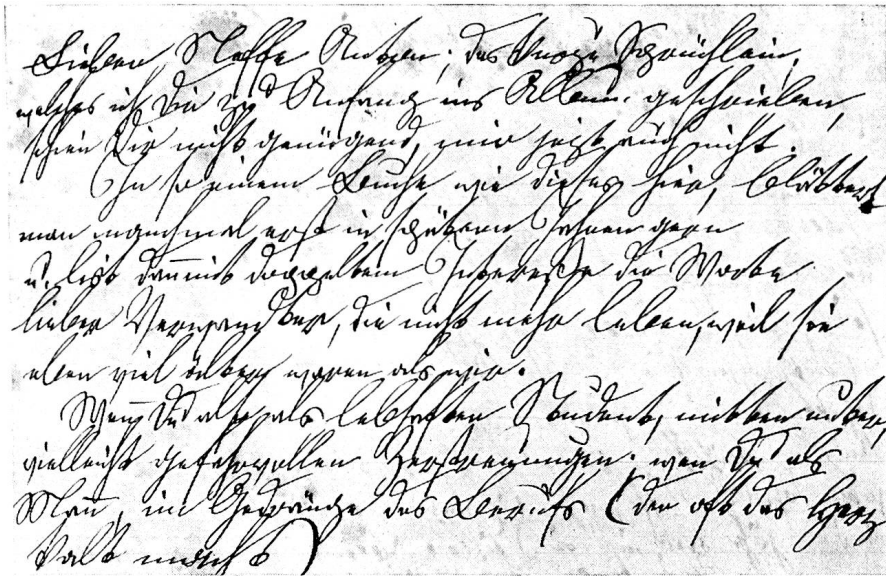 Lieber Neffe Anton; das kurze Sprüchlein,
welches ich Dir zu Anfang ins Album geschrieben,
schien Dir nicht genügend, mir jetzt auch nicht.
In so einem Buche wie dieses hier, blättert
man manchmal erst in spätern Jahren gern
u. liest dann mit doppeltem Interesse die Worte
lieber Verwandter, die nicht mehr leben, weil sie
eben viel älter waren als wir.
Wenn Du also als lebhafter Student, mitten unter,
vielleicht gefahrvollen Zerstreuungen; wen Du als
Mann, im Gedränge des Berufs (der oft das Herz
kalt macht)